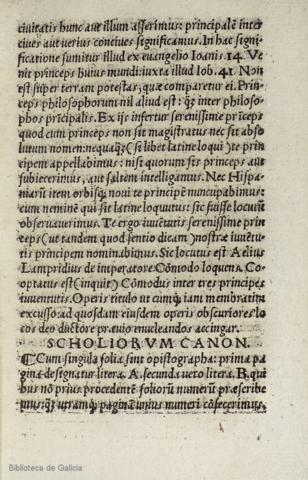 ciuitatis hunc aut illum asserimus: principalē inter
ciues aut verius conciues significamus. In hac signi-
ficatione sumitur illud ex euangelio Ioanis.14. Ve
nit princeps huius mundi:iuxta illud Iob.41. Non
est super terram potestas, quæ comparetur ei. Prin-
ceps philosophorum nil aliud est: q̃z inter philoso-
phos prīcipalis. Ex ijs infertur serenissime prīceps
quod cum princeps non sit magistratus nec sit abso
lutum nomen:nequaq̃z( si libet latine loqui )te prin
cipem appellabimus: nisi quorum sis princeps aut
subiecerimus, aut saltēm intelligamus. Nec Hispa-
niarū item orbisq̃z noui te principē nuncupabimus:
cum neminē qui sit latine loquutus: sic fuisse locutū
obseruauerimus. Te ergo iuuētutis serenissime prin
ceps(ut tandem quod sentio dicam)nostræ iuuētu-
tis principem nominabimus. Sic locutus est Aelius
Lampridius de imperatore Cōmodo loquens. Co-
optatus est(inquit) Cōmodus inter tres principes
iuuentutis. Operis titulo ut cumq̃z iam membratim
excusso: ad quosdam eiusdem operis obscuriores lo
cos deo ductore præuio enucleandos accingar.
SCHOLIORVM CANON.
¶ Cum singula folia sint opistographa: prima pa
gina designatur litera. A. secunda uero litera. B. qui
bus nō prius procedentē foliorū numerū præscribe
mus:q̃z utramq̃z paginā unius numeri cōfecerimus.
Biblioteca de Galicia